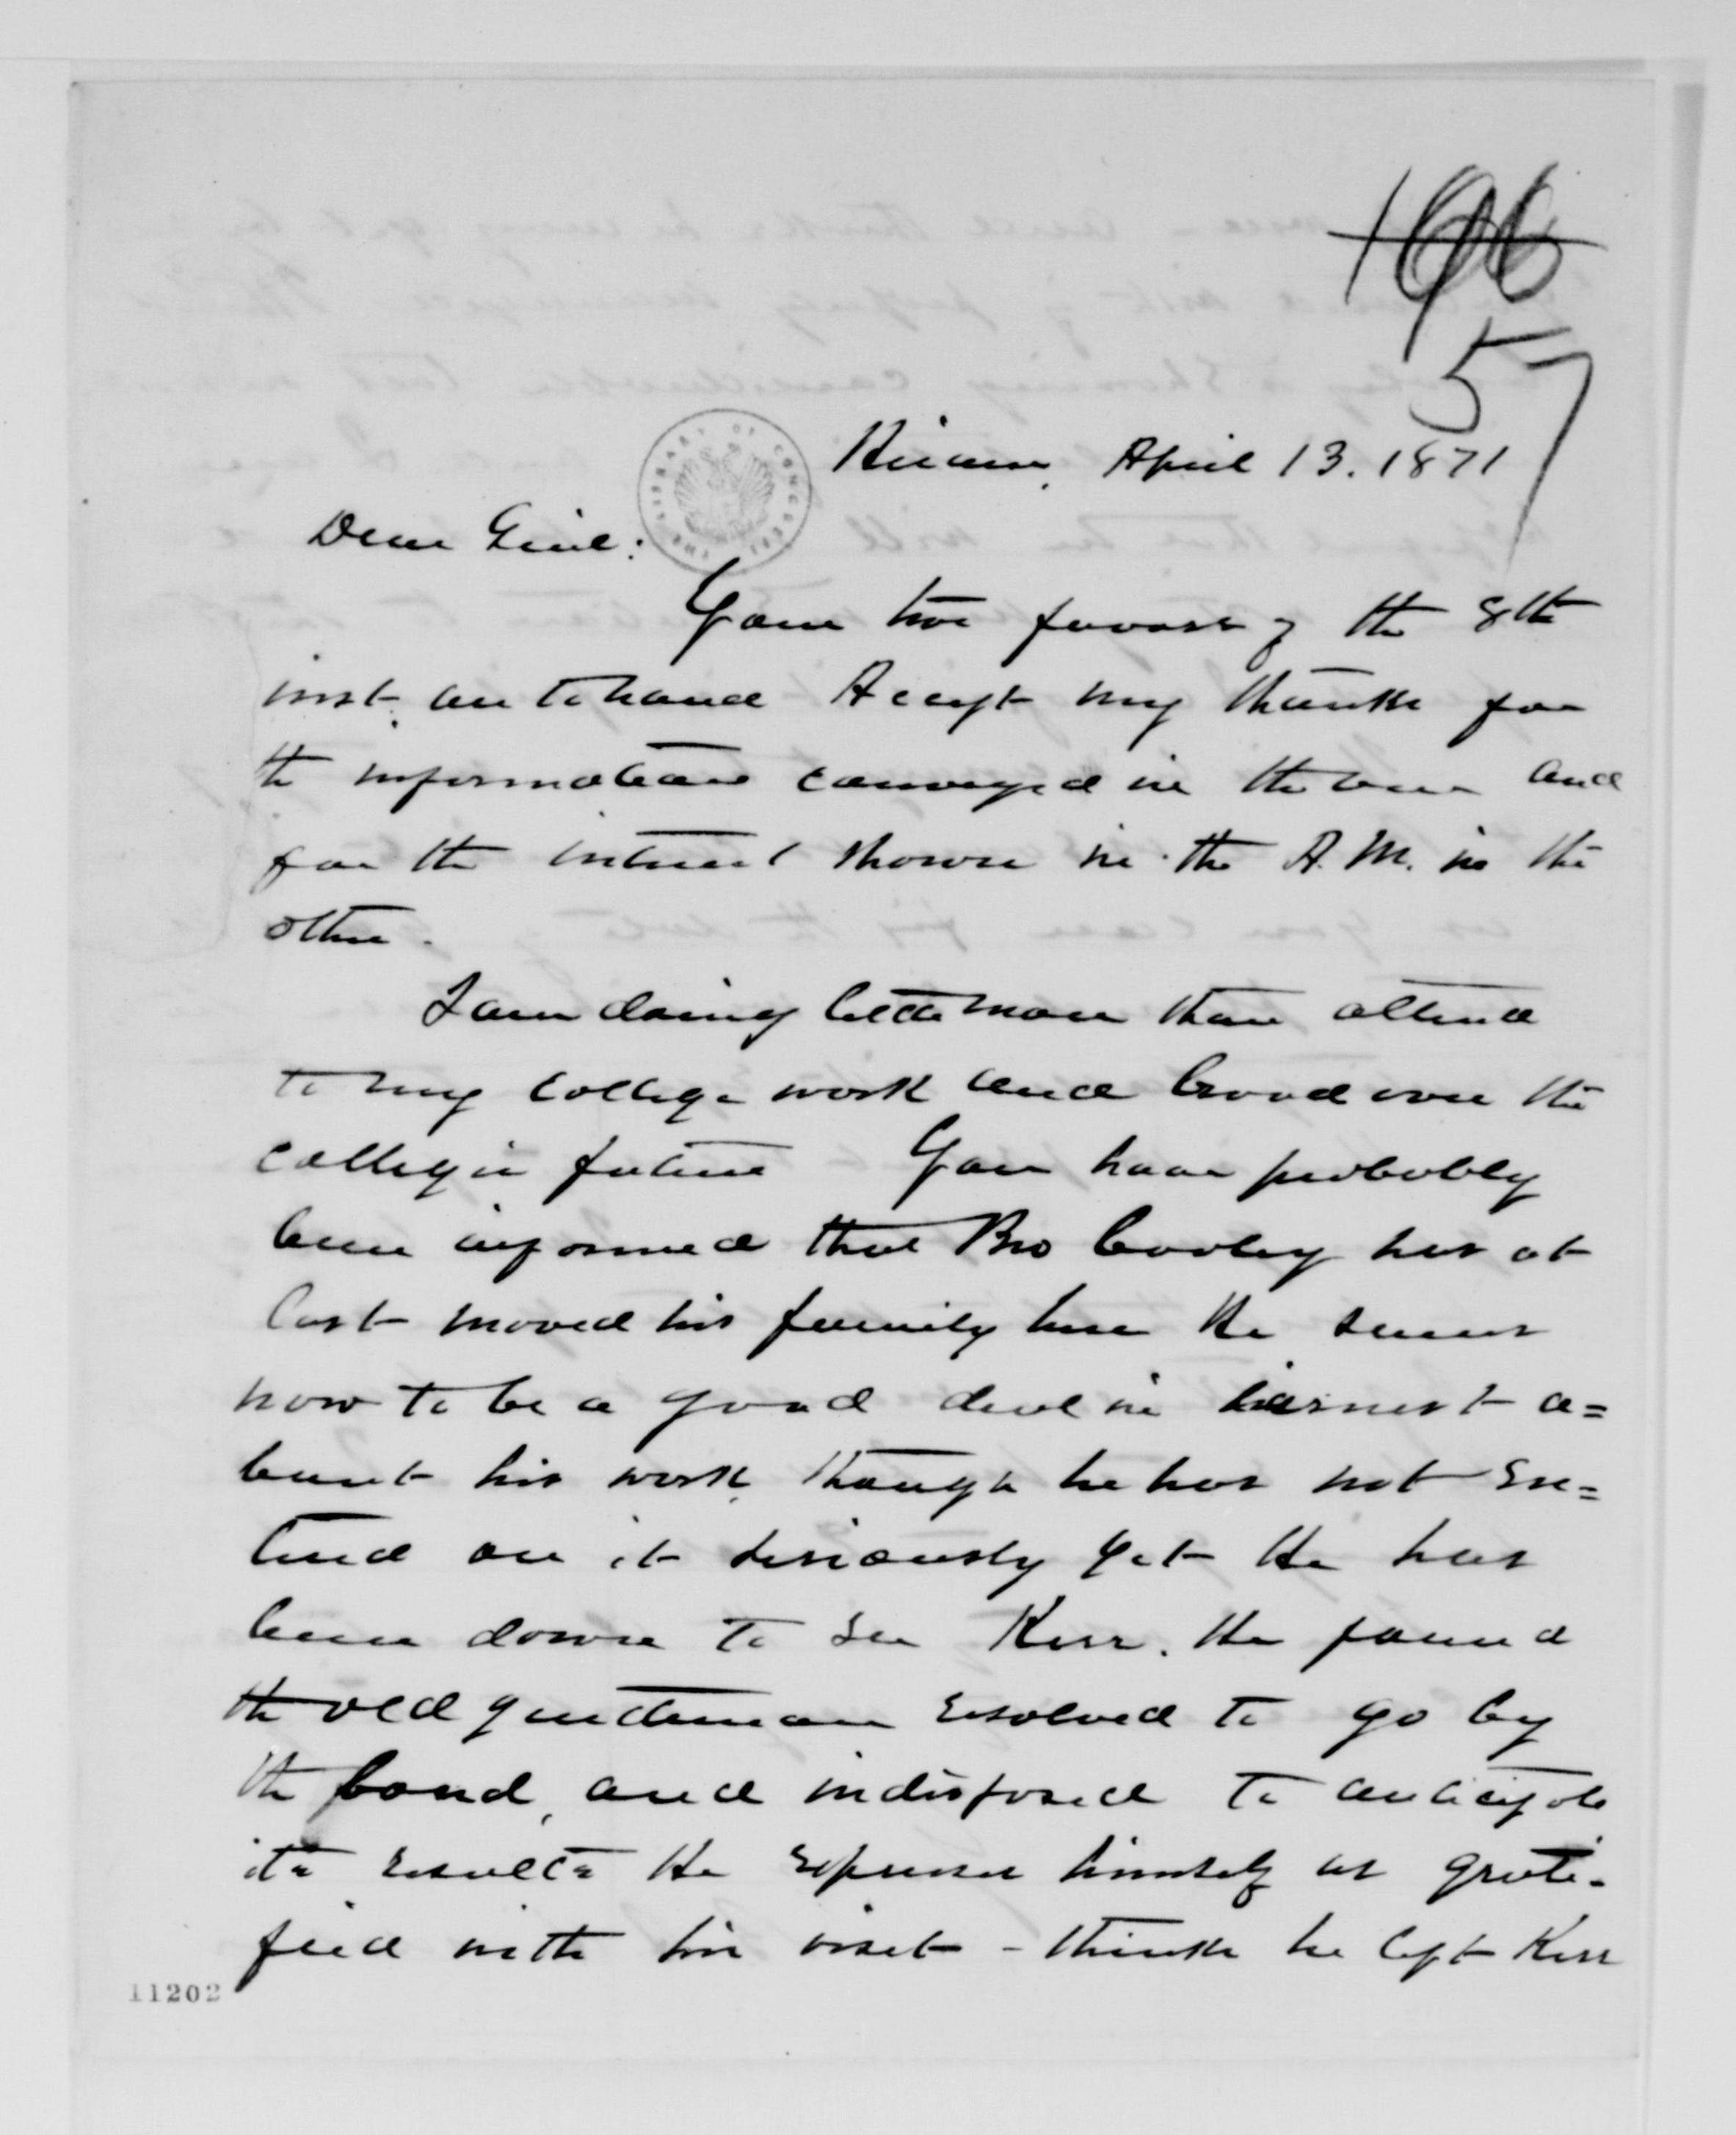 57
Hiram, April 13. 1871
Dear Genl:
Your two favors of the 8th
inst. are to hand Accept my thanks for
the information conveyed in the one and
for the interest shown in the A. M. in the
other.
I am doing little more than attend
to my college work and brood over the
college's future You have probably
been informed that Bro Cooley has at
last moved his family here He seems
now to be a good deal in earnest a=
bout his work, though he has not en=
tered on it seriously yet He has
been down to see Kerr. He found
the old gentleman resolved to go by
the bond, and indisposed to anticipate
its results He expresses himself as grati-
fied with his visit - thinks he left Kerr
11202
THE LIBRARY OF CONGRESS